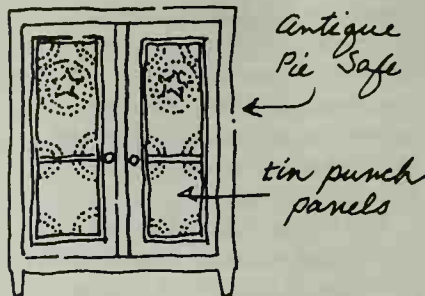 Antique
Pie Safe
tin punch
panels